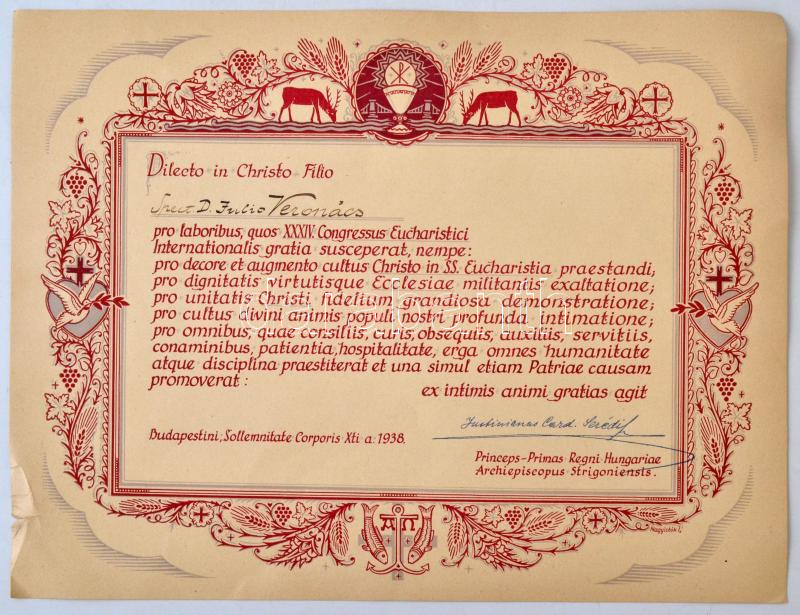 Dilecto in Christo Filio
Spect. D. Julio Veronács
pro laboribus, quos XXXIV. Congressus Eucharistici
Internationalis gratia susceperat, nempe:
pro decore et augmento cultus Christo in SS. Eucharistia praestandi;
pro dignitatis virtutisque Ecclesiae militantis exaltatione;
pro unitatis Christi fidelium grandiosa demonstratione;
pro cultus divini animis populi nostri profunda intimatione;
pro omnibus, quae consiliis, curis, obsequiis, auxiliis, servitiis,
conaminibus, patientia, hospitalitate, erga omnes humanitate
atque disciplina praestiterat et una simul etiam Patriae causam
promoverat:
ex intimis animi gratias agit
Justinianus Card. Serédi
Budapestini, Sollemnitate Corporis Xti a: 1938.
Princeps-Primas Regni Hungariae
Archiepiscopus Strigoniensis.
A Ω
darabanth